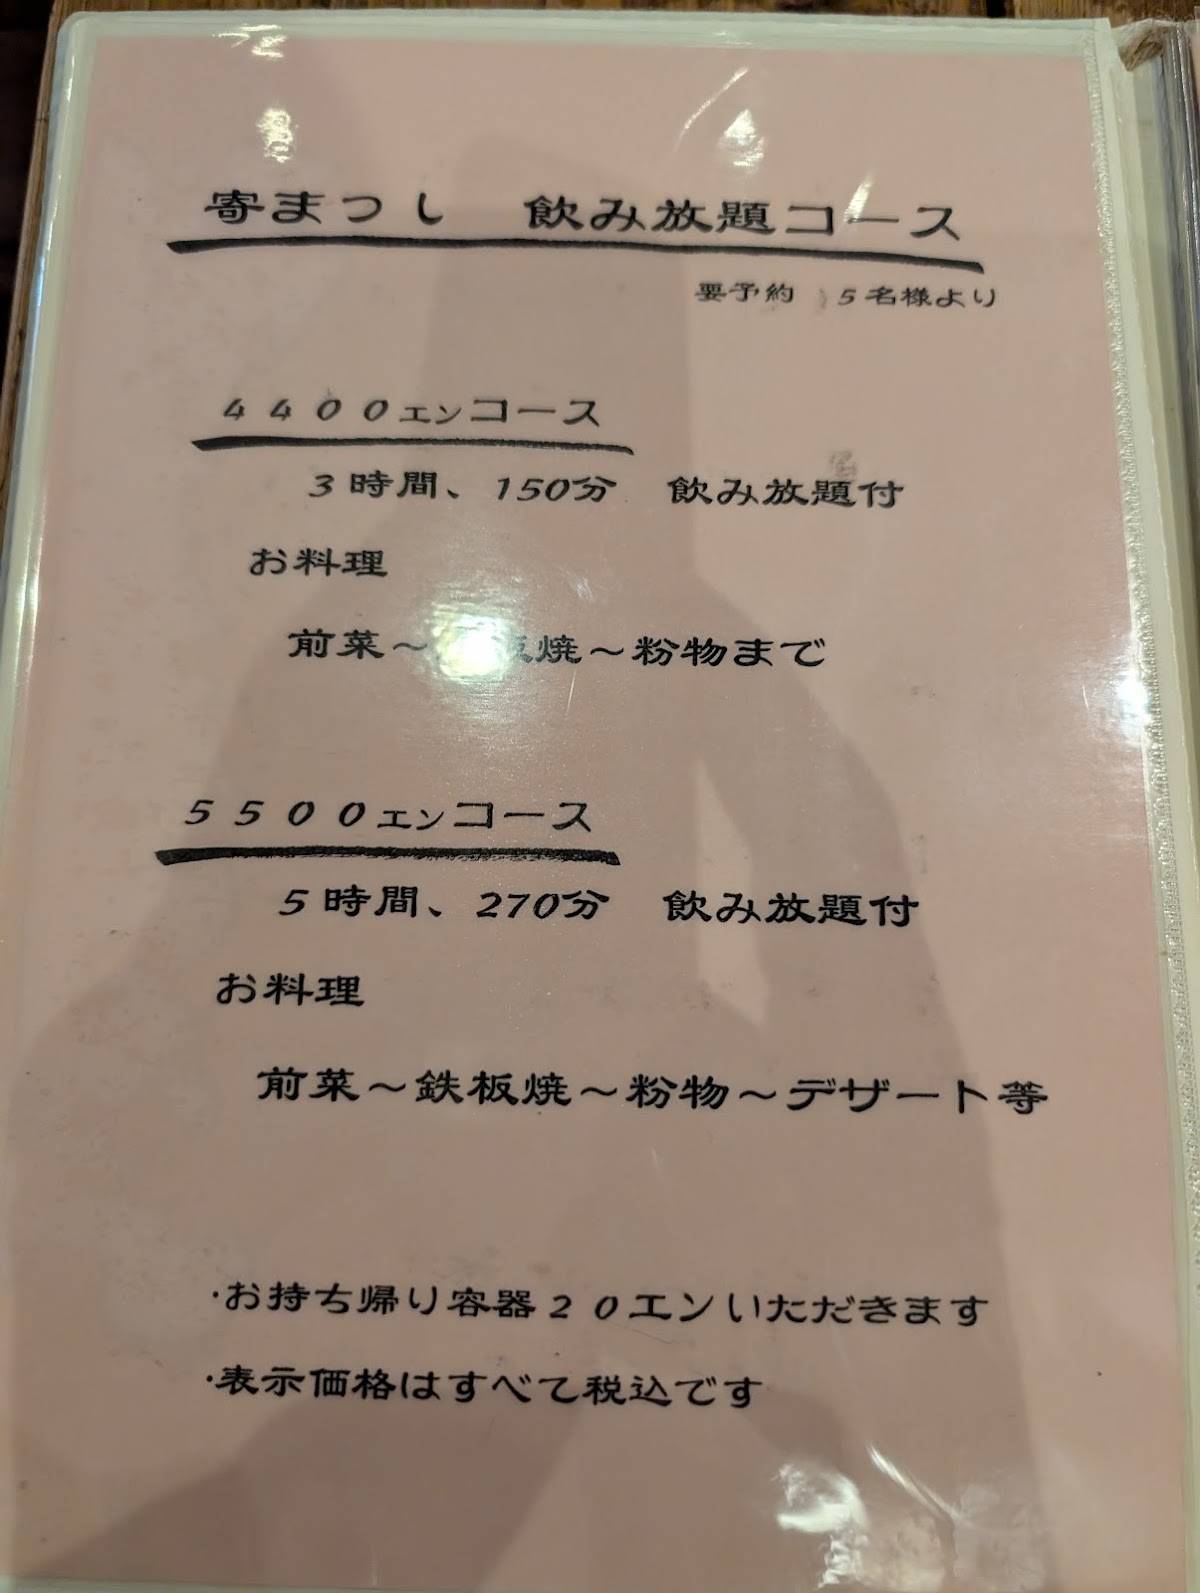 寄まつし 飲み放題コース
要予約 5名様より
4400エンコース
3時間、150分 飲み放題付
お料理
前菜～板焼～粉物まで
5500エンコース
5時間、270分 飲み放題付
お料理
前菜～鉄板焼～粉物～デザート等
・お持ち帰り容器20エンいただきます
・表示価格はすべて税込です